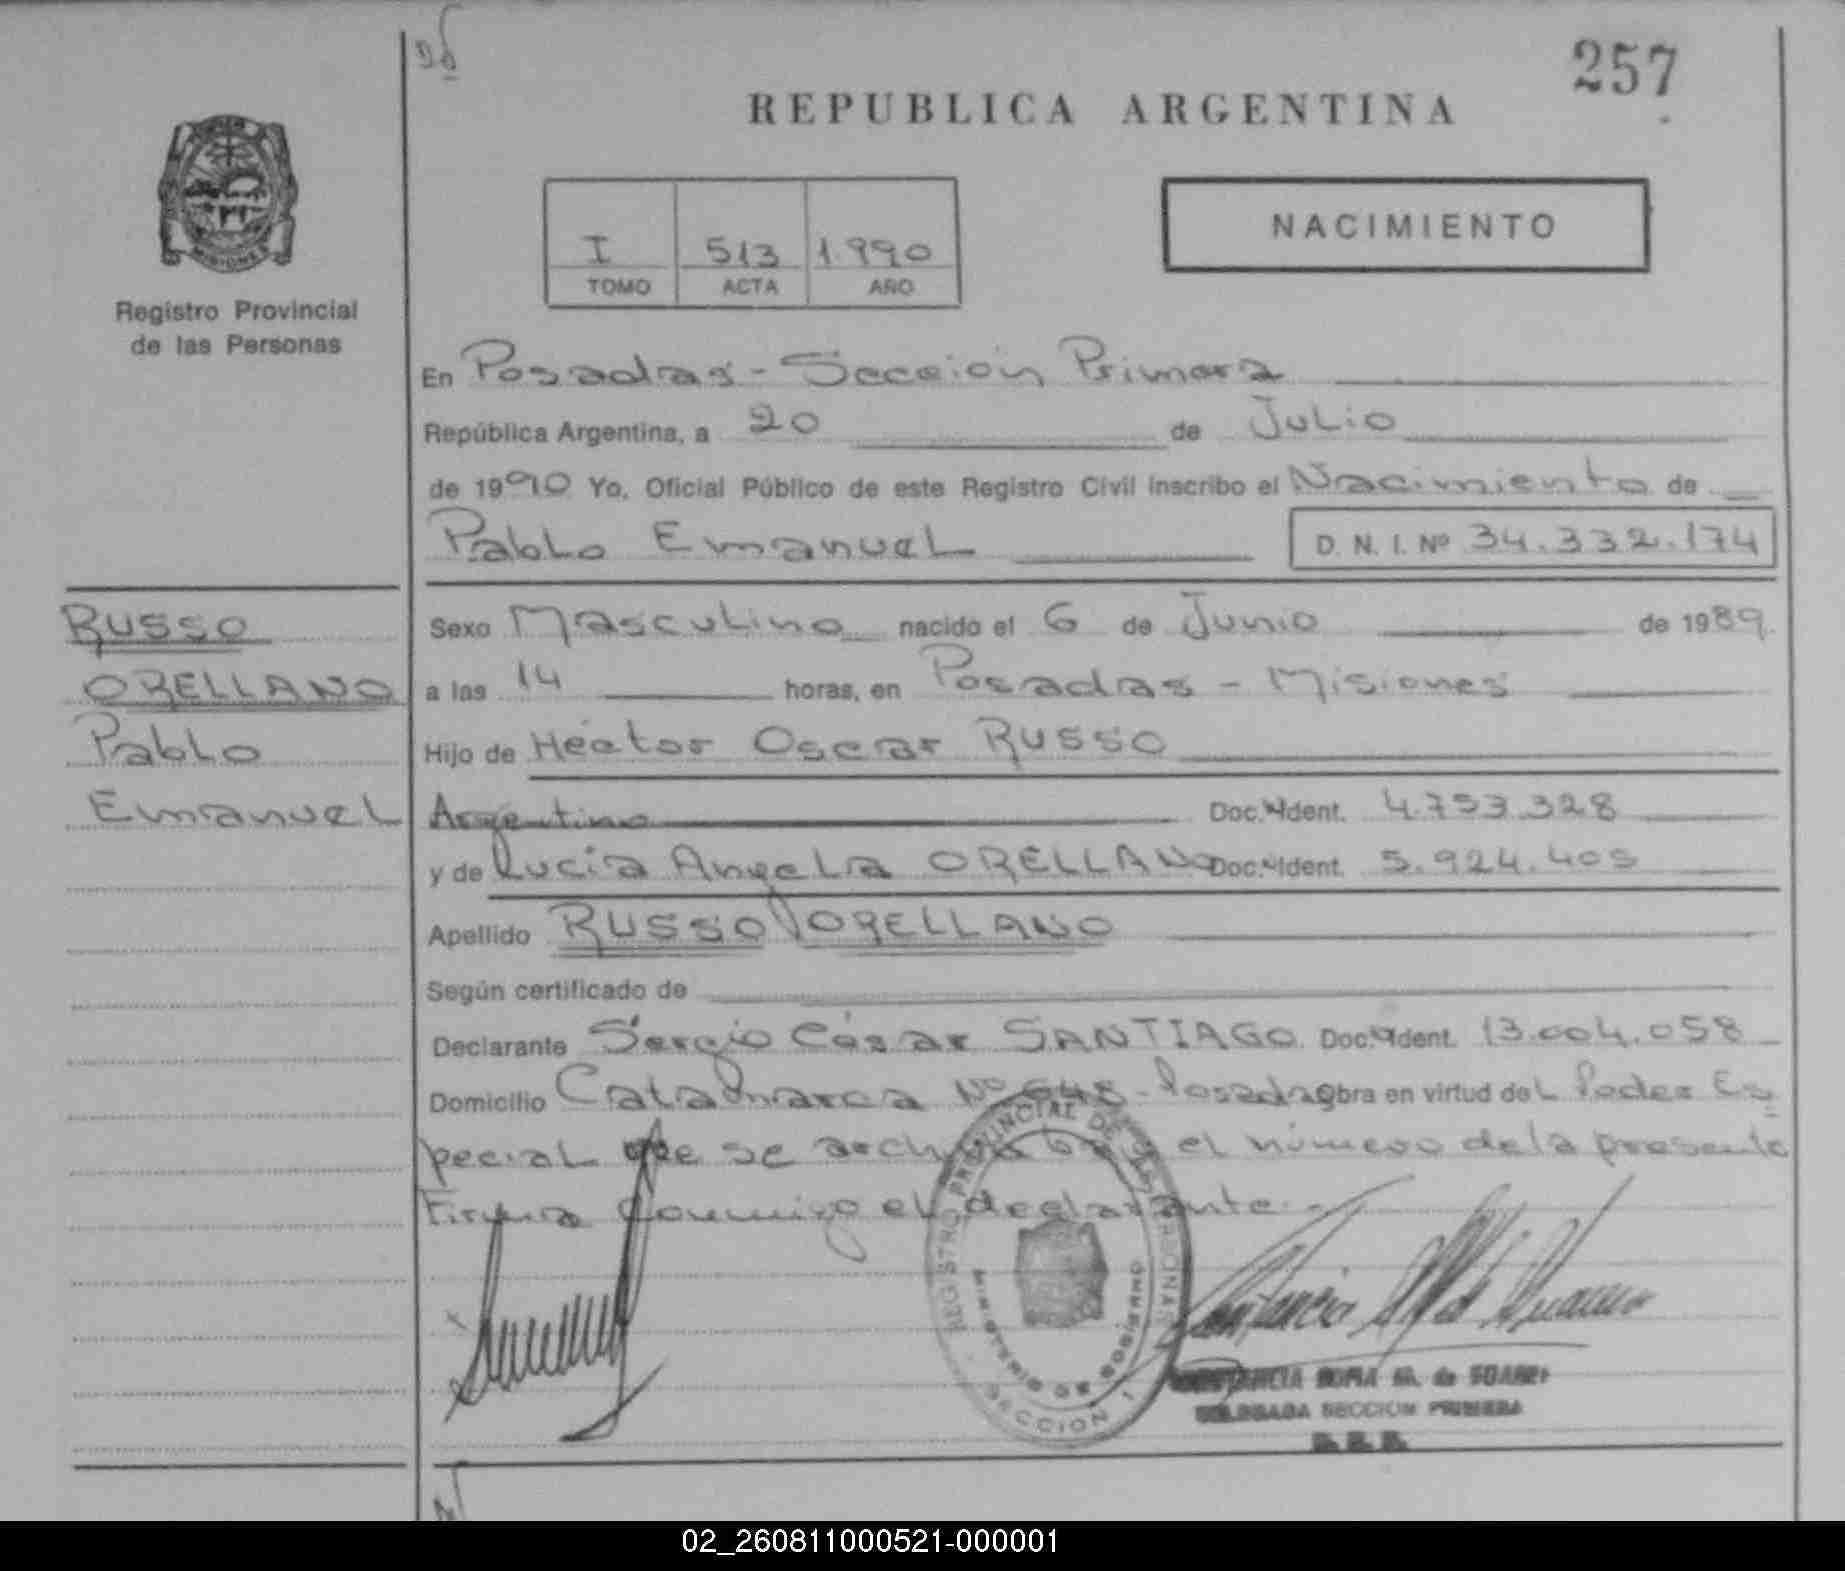 257
REPUBLICA ARGENTINA
MISIONES
Registro Provincial
de las Personas
I 513 1.990
TOMO ACTA AÑO
NACIMIENTO
En Posadas - Sección Primera
República Argentina, a 20 de Julio
de 1990 Yo, Oficial Público de este Registro Civil inscribo el Nacimiento de
Pablo Emanuel D. N. I. Nº 34.332.174
RUSSO
ORELLANO
Pablo
Emanuel
Sexo Masculino nacido el 6 de Junio de 1989.
a las 14 horas, en Posadas - Misiones
Hijo de Héctor Oscar RUSSO
Argentino Doc. Ident. 4.753.328
y de Lucia Angela ORELLANO Doc. Ident. 5.924.405
Apellido RUSSO ORELLANO
Según certificado de
Declarante Sergio César SANTIAGO Doc. Ident. 13.004.058
Domicilio Catamarca Nº 648 - Posadas obra en virtud del Poder Es
pecial que se archiva bajo el número de la presente
Firma conmigo el declarante.-
REGISTRO PROVINCIAL DE LAS PERSONAS
MINISTERIO DE GOBIERNO
SECCION 1
CONSTANCIA SOFIA de SUAREZ
DELEGADA SECCION PRIMERA
02_260811000521-000001